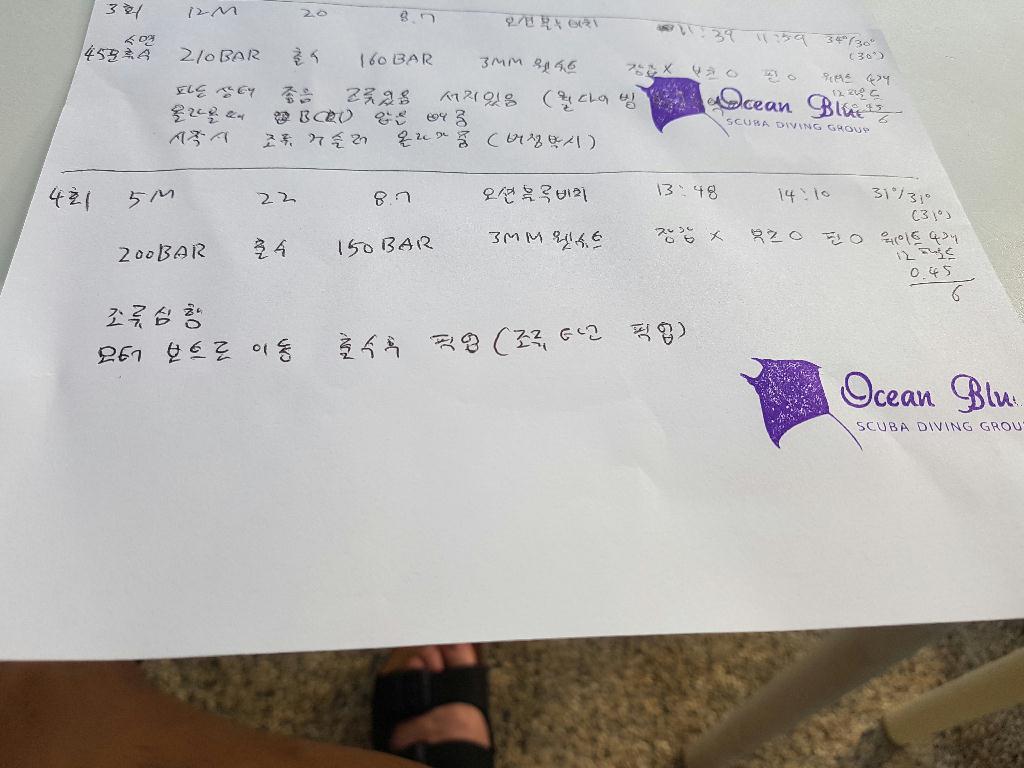 3회 12M 20 8.7 11:39 11:59 34°/30°
(30°)
수면
45분휴식 210BAR 출수 160BAR 3MM 웻슈트 장갑 X 부츠 O 핀 O 웨이트 4개
12파운드
0.45
6
파도 상태 좋음 조류있음 서지있음
올라올때 않은
시작시 조류 거슬러 올라가 (버정박시)
Ocean Blue
SCUBA DIVING GROUP
4회 5M 22 8.7 오션블루비치 13:48 14:10 31°/31°
(31°)
200BAR 출수 150BAR 3MM 웻슈트 장갑 X 부츠 O 핀 O 웨이트 4개
12파운드
0.45
6
조류심함
모터 보트로 이동 출수후 픽업 (조류 픽업)
Ocean Blu
SCUBA DIVING GROU